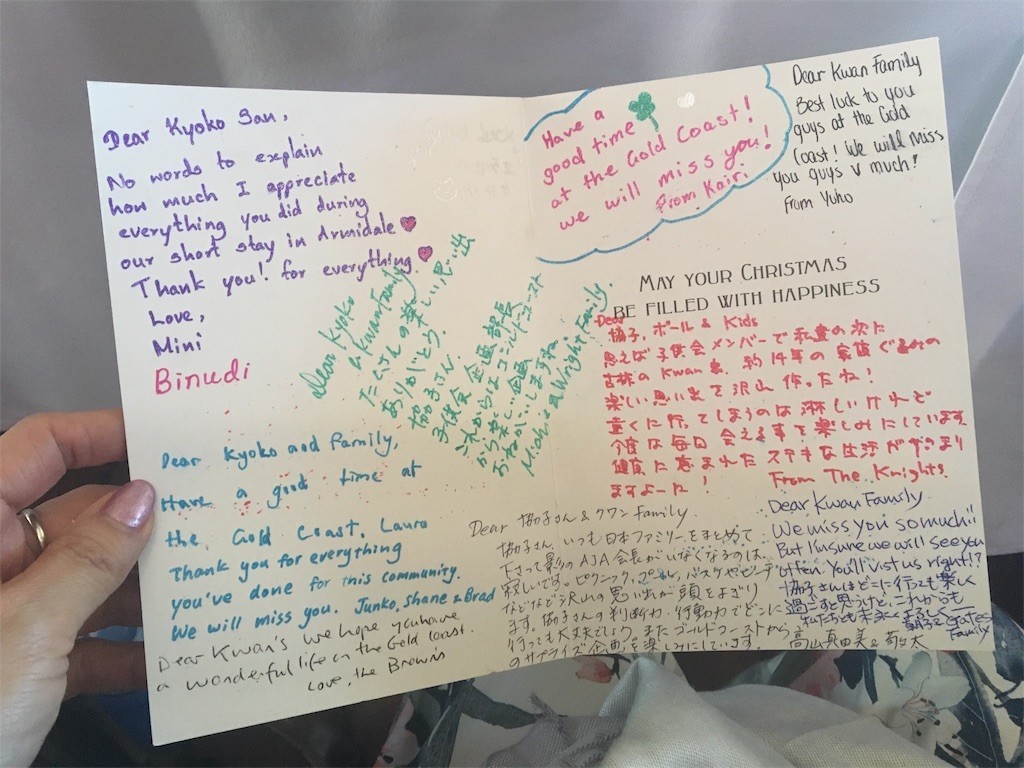 Dear Kyoko San,
No words to explain
how much I appreciate
everything you did during
our short stay in Armidale
Thank you! for everything.
Love,
Mini
Binudi
Dear Kyoko
& Kwan Family
たくさんの楽しい思い出
ありがとう。
協子さん
子供会 企画部長
これからはゴールドコースト
から楽しい企画
おねがいしますね
Michie & Wright Family.
Dear Kyoko and Family,
Have a good time at
the Gold Coast, Laura
Thank you for everything
you've done for this community.
We will miss you. Junko, Shane & Brad
Dear Kwan's we hope you have
a wonderful life in the Gold Coast.
Love, the Brown's
Have a
good time
at the Gold Coast!
we will miss you!
From Kairi
Dear Kwan Family
Best luck to you
guys at the Gold
Coast! We will miss
you guys v much!
From Yuho
MAY YOUR CHRISTMAS
BE FILLED WITH HAPPINESS
Dear
協子, ポール & Kids
思えば子供会メンバーで私達の次に
古株の Kwan家。約14年の家族ぐるみの
楽しい思い出を沢山作ったね!
遠くに行ってしまうのは淋しいけれど
今度は毎日会える事を楽しみにしています。
健康に恵まれたステキな生活が
ますよーに!
From The Knights
Dear 協子さん & クワン Family.
協子さん、いつも日本ファミリーをまとめて
下さって影の AJA 会長がいなくなるのは、
寂しいです。ピクニック、プール、バスケやビーチ
などなど沢山の思い出が頭をよぎり
ます。協子さんの判断力・行動力でどこに
行っても大丈夫でしょう。またゴールドコーストから
のサプライズ企画を楽しみにしています。
高山真由美 &
Dear Kwan Family
We miss you so much!!
But I'm sure we will see you
often. You'll visit us right!?
協子さんはどこに行っても楽しく
過ごすと思うけど、これからも
私たちも末永くよろしく
Gates
Family